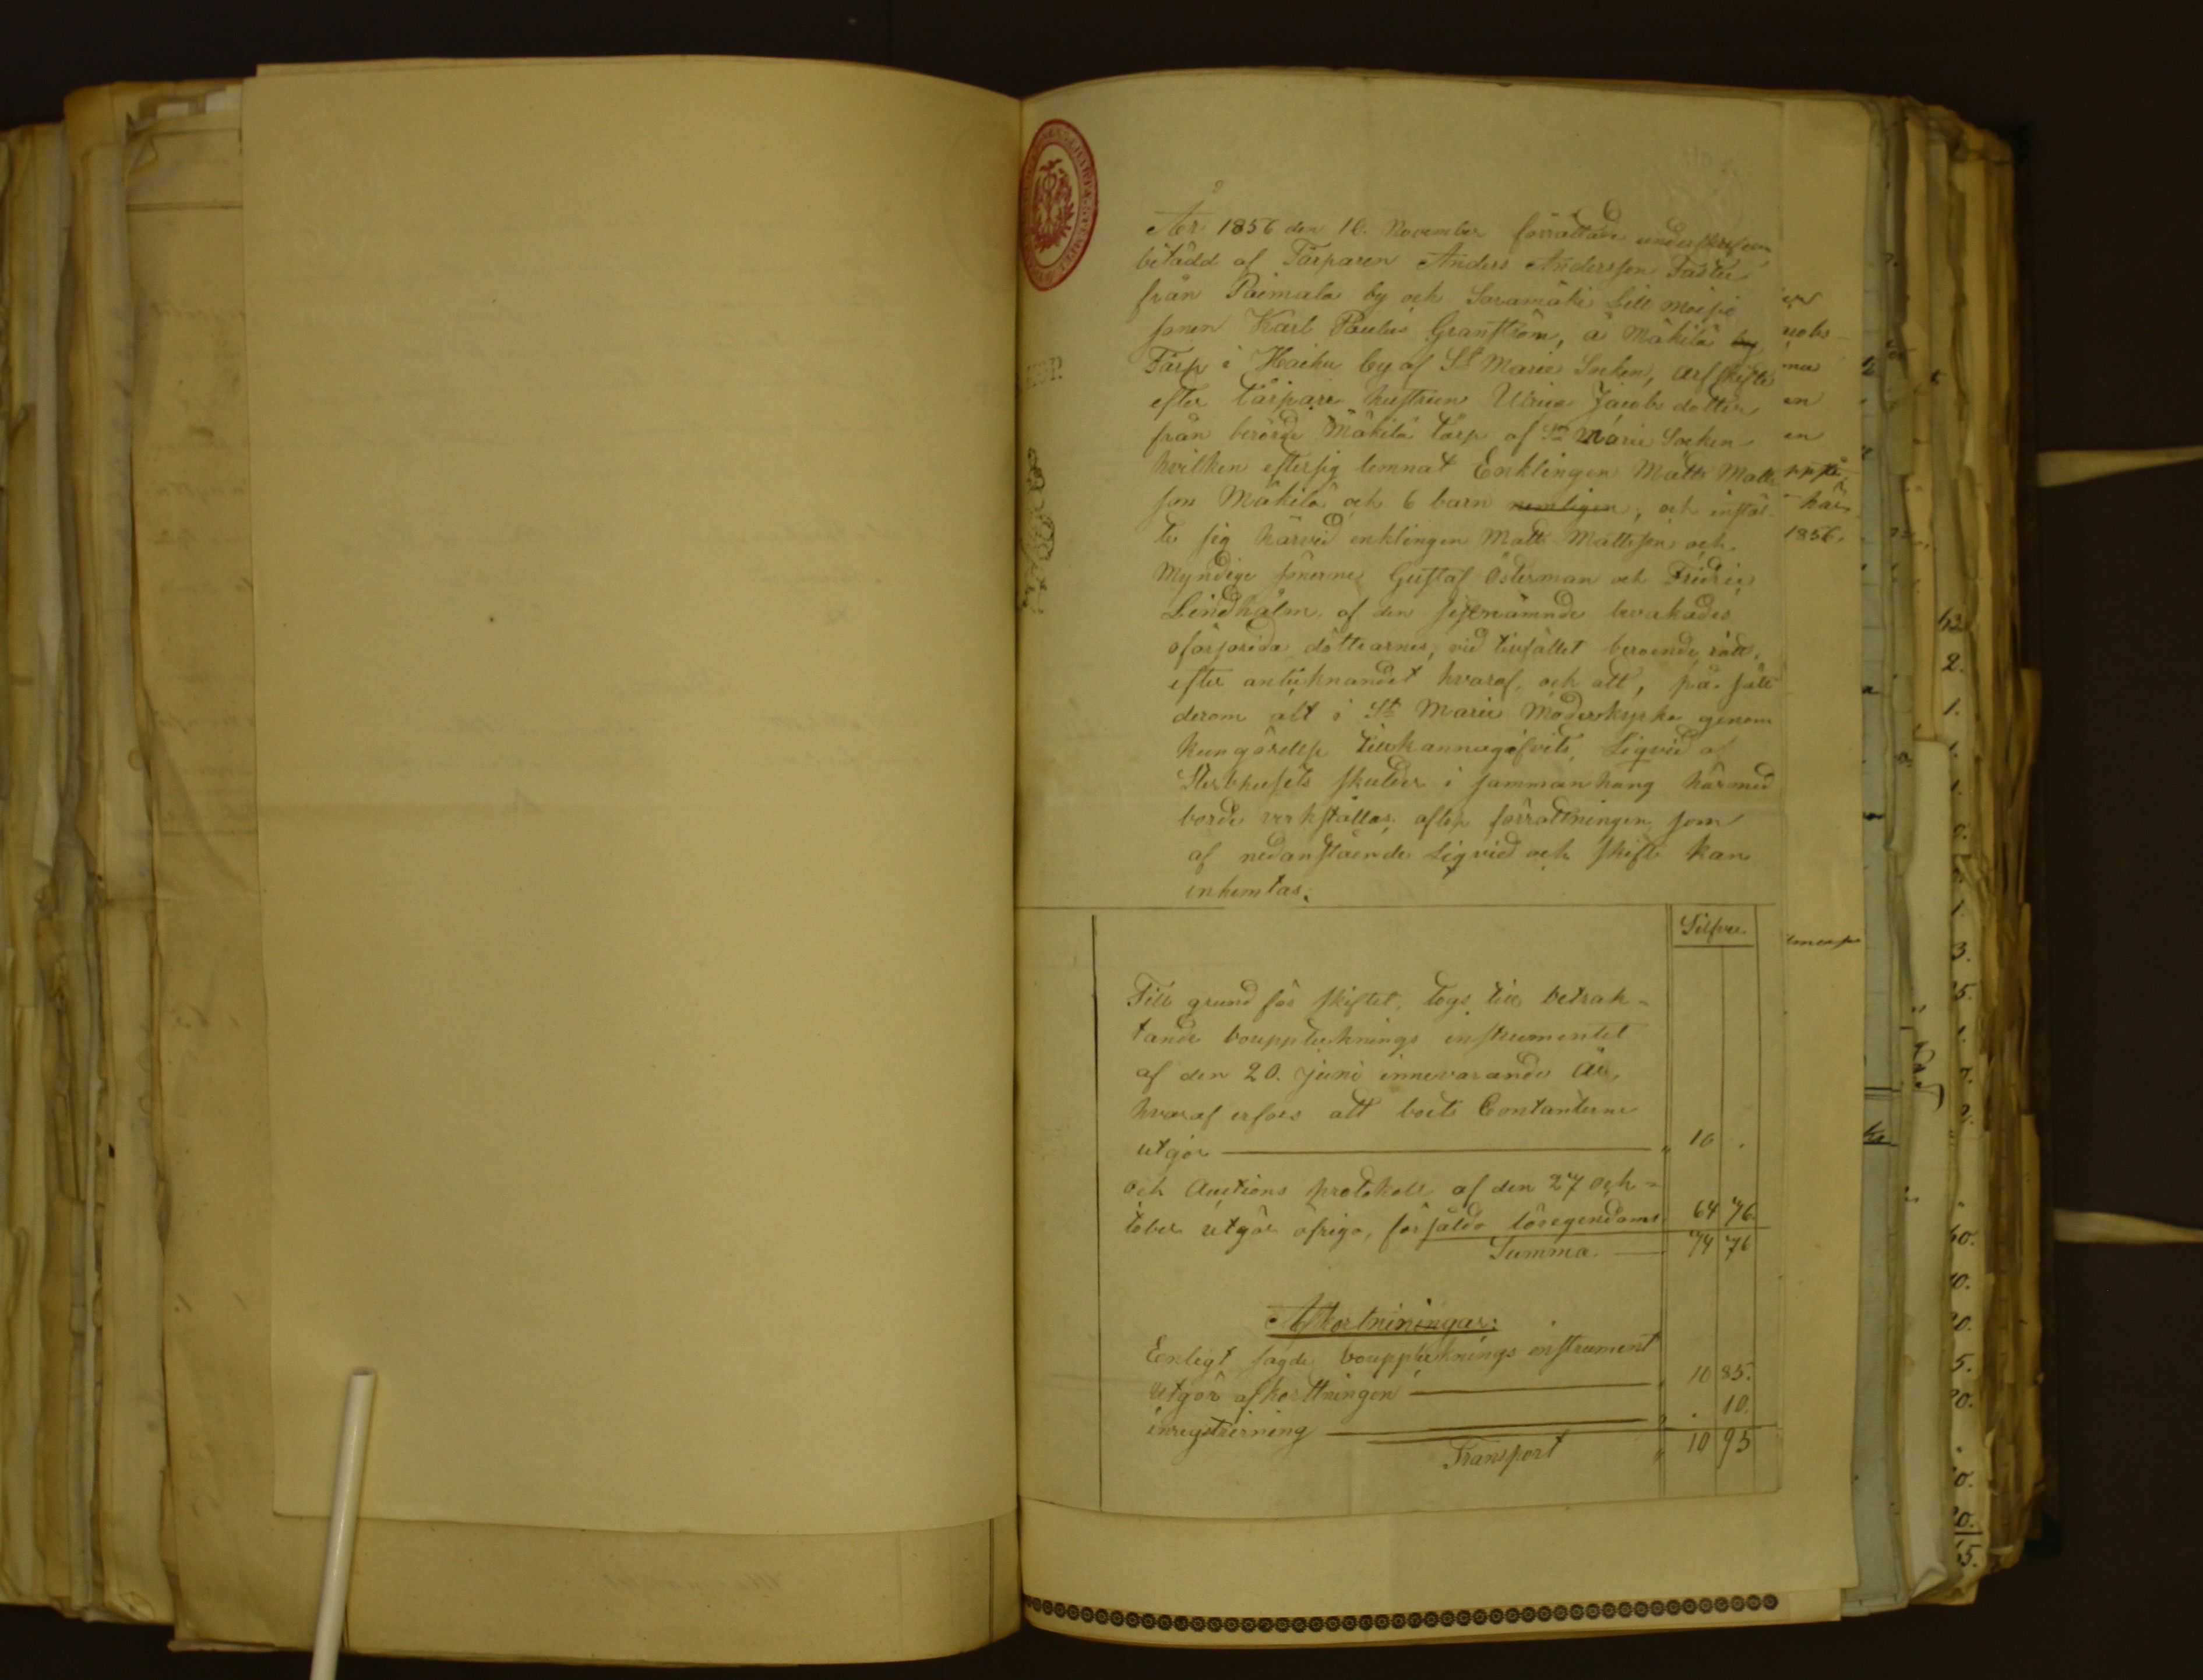 År 1856 den 10. November förrättade underskrefven
biträdd af Tårparen Anders Andersson Taster
från Paimala by och Soramäki
sonen Karl Paulus Granström, å Mäkilä by
Tårp i Haiku by af S:t Marie Socken, arfskifte
efter tårpare hustrun Ulrica Jacobs dotter
från berörde Mäkilä tårp af S:t Marie Socken
hvilken eftersig lemnat Enklingen Matts Matts
son Mäkilä och 6 barn nemligen, och instäl-
te sig härvid enklingen Matts Mattsson och
Myndige sönerne Gustaf Österman och Fridric
Lindholm, af den sistnämnde bevakades
oförsörjda döttrarnes, vid tillfället beroende rätt,
efter antecknandet hvaraf, och att, på sätt
derom att i S:t Marie Moderkyrka genom
kungörelse tillkännagifvits, Liqvid af
Sterbhusets skulder i sammanhang härmed
borde verkställas, aflop förrättningen som
af nedanstående Liqvid och skifte kan
inhemtas:
Silfver
Till grund för skiftet, togs till betrak-
tande bouppteknings instrumentet
af den 20. Juni innevarande År,
hvaraf erfors att boets Contanterne
utgör " 10 .
och Auctions protokoll af den 27 Ock-
tober utgör öfriga, försålda lösegendoms 64 76.
Summa 74 76
Afkortniningar:
Enligt sagde bouppteknings instrument
utgör afkorttningen " 10 85.
inregistrering " . 10.
Transport " 10 95
1856.